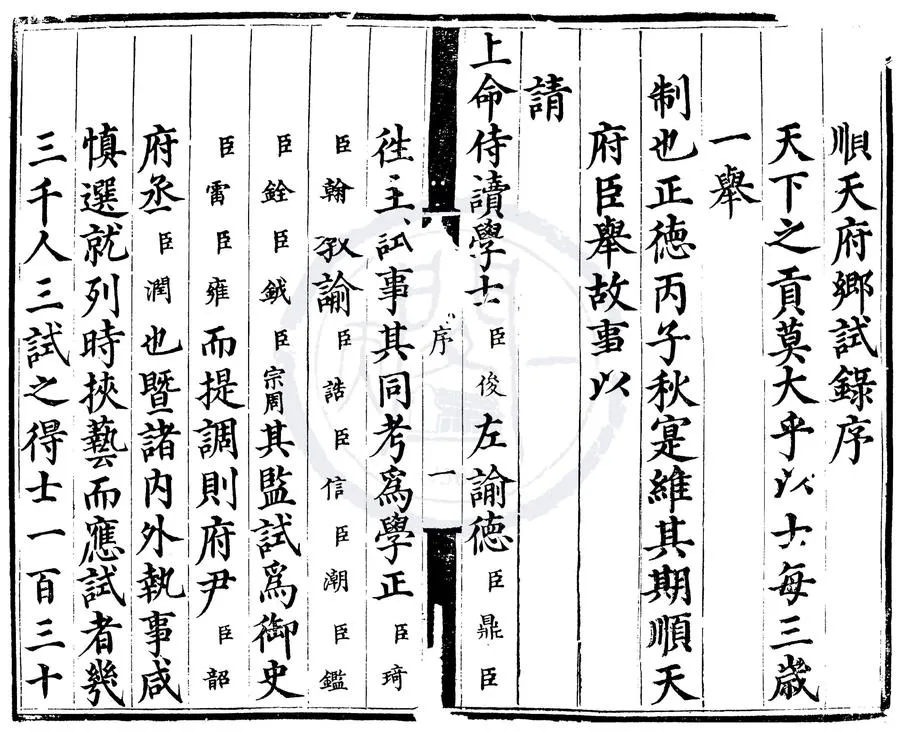 順天府鄉試錄序
天下之貢莫大乎以士每三歲
一舉
制也正德丙子秋寔維其期順天
府臣舉故事以
請
上命侍讀學士臣俊左諭德臣鼎臣
序 一
徃主試事其同考爲學正臣琦
臣翰教諭臣誥臣信臣潮臣鑑
臣銓臣鉞臣宗周其監試爲御史
臣雷臣雍而提調則府尹臣韶
府丞臣潤也暨諸内外執事咸
慎選就列時挾藝而應試者幾
三千人三試之得士一百三十